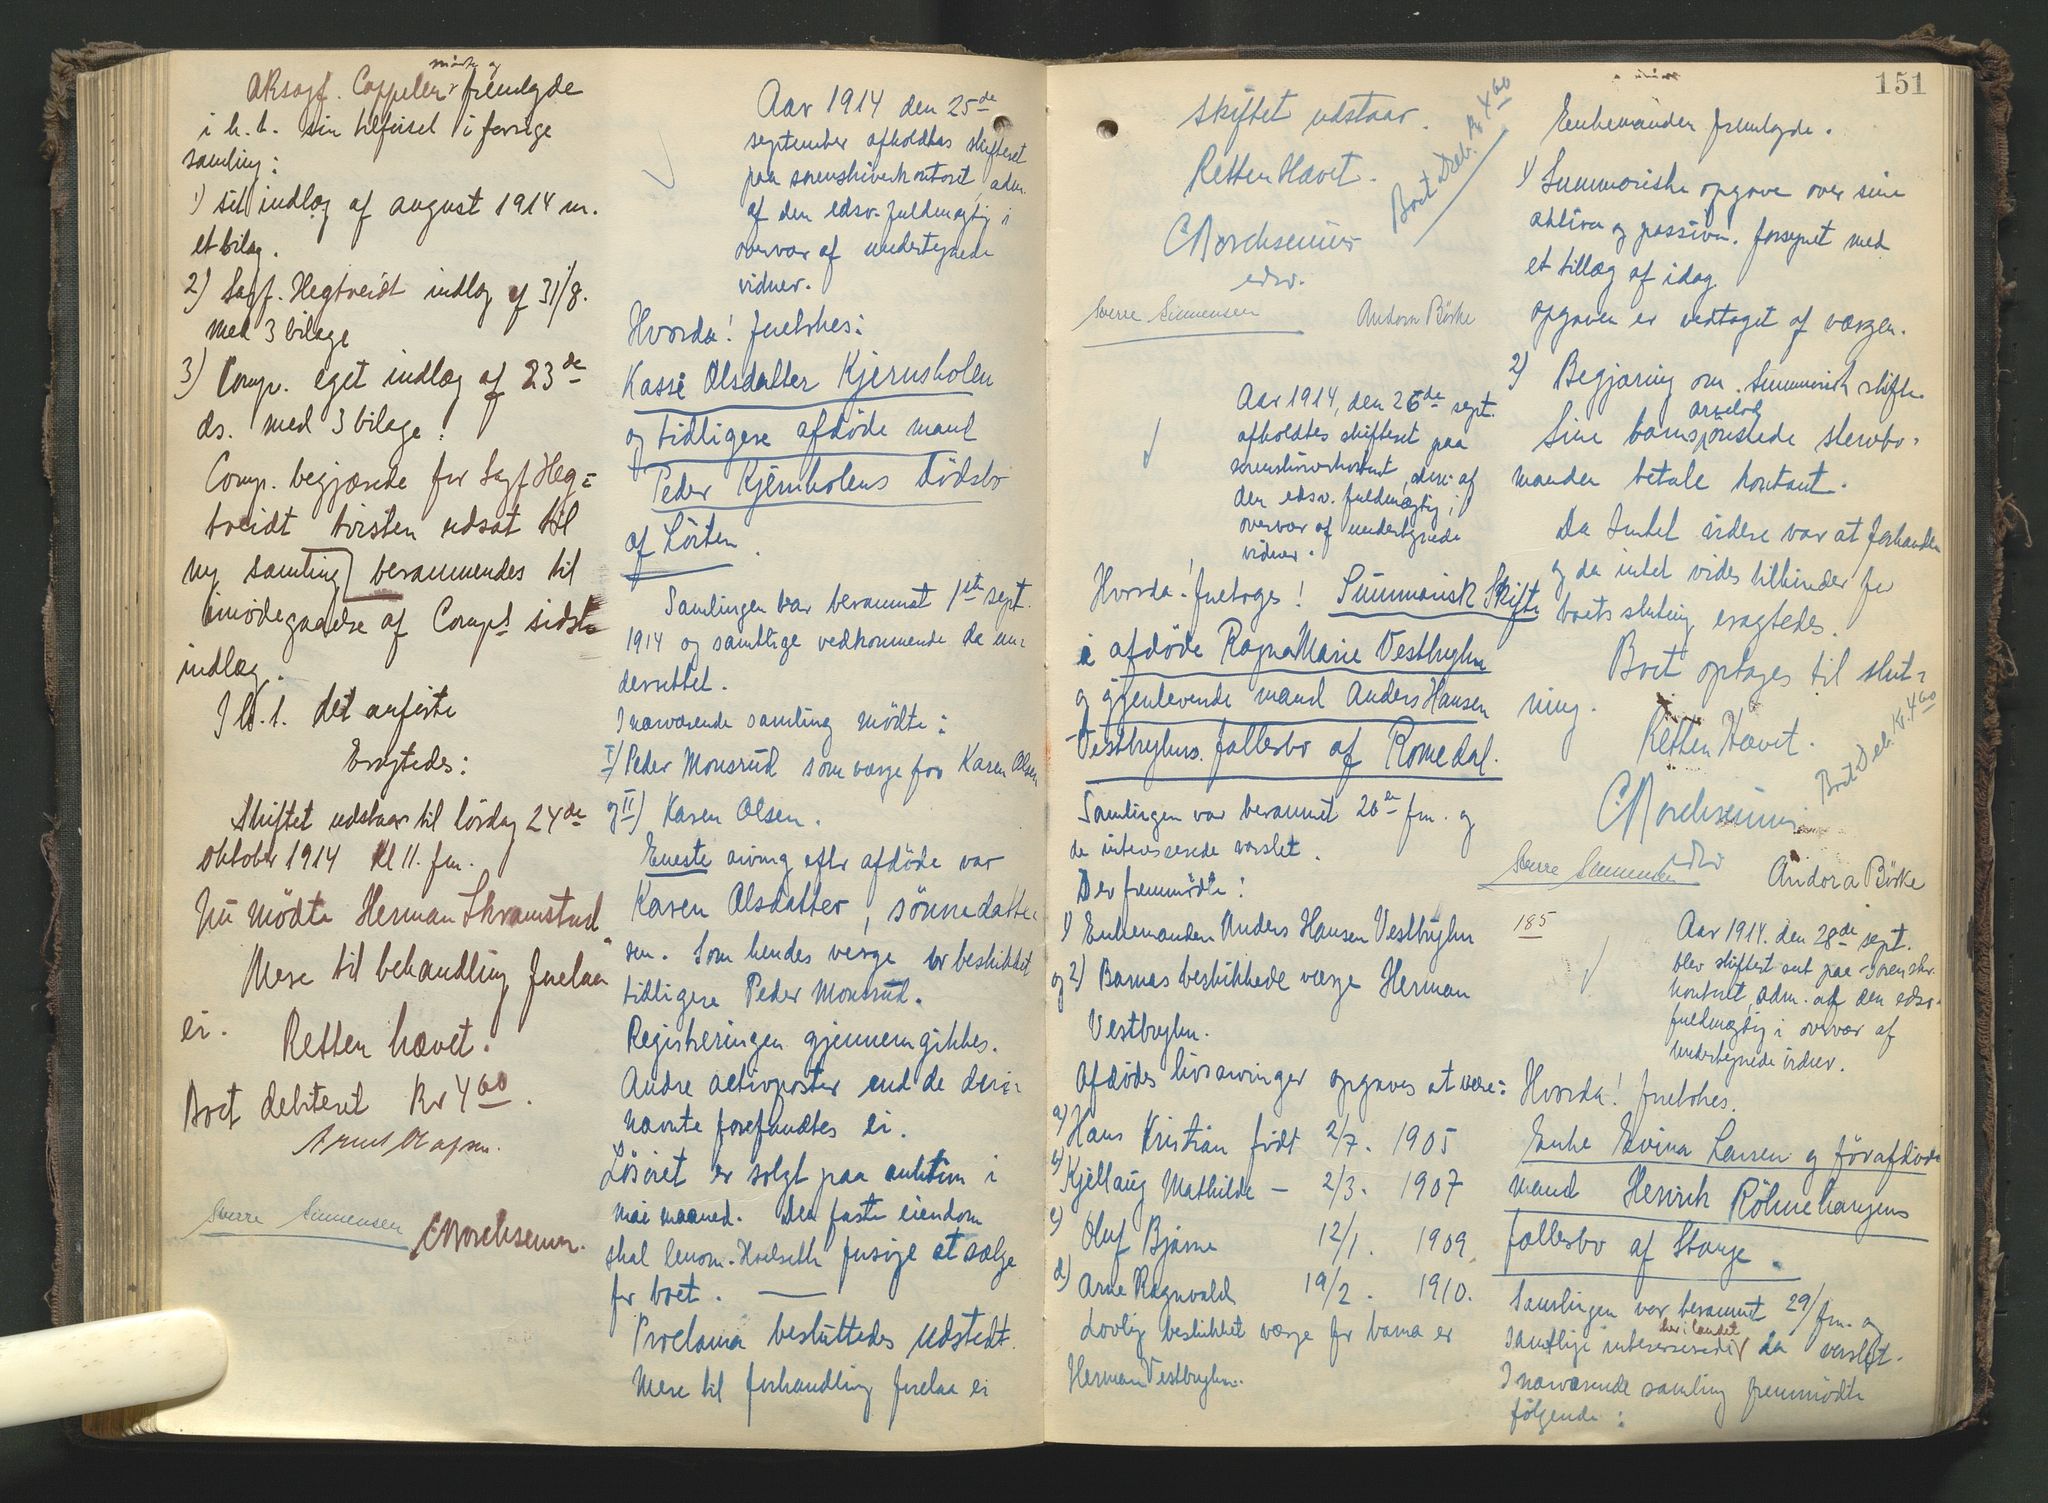 møtte og
Oksagf. Cappelen fremlagde
i h. t. sin tilførsel i forrige
samling:
1) sit indlæg af august 1914 m.
et bilag.
2) Sagf. Hegtveidt indlæg af 31/8.
med 3 bilage
3) Comp. eget indlæg af 23de
ds. med 3 bilage.
Comp. begjærede for Sagf Heg=
tveidt tvisten udsat til
ny samling berammendes til
imødegaaelse af Comps sidste
indlæg.
I h. t. det anførte
Eragtedes:
Skiftet udstaar til lørdag 24de
oktober 1914 kl 11. fm.
Nu mødte Herman Skramstad
Mere til behandling forelaa
ei.
Retten hævet.
Boet debiteret Kr 4 60.
Sverre Simensen
CBorchsenius.
Aar 1914 den 25de
september afholdtes skifteret
paa sorenskriverkontoret, adm.
af den edsv. fuldmægtig i
overvær af undertegnede
vidner.
Hvorda! foretoges:
Kassi Olsdatter Kjernsholen
og tidligere afdøde mand
Peder Kjernholens dødsbo
af Löiten.
Samlingen var berammet 1ste sept.
1914 og samtlige vedkommende da un=
derrettet.
I nærværende samling mödte:
I) Peder Monsrud som værge for Karen Olsen
og II) Karen Olsen.
Eneste arving efter afdöde var
Karen Olsdatter, sönnedatter
sen. Som hendes verge er beskikket
tidligere Peder Monsrud.
Registreringen gjennemgikkes.
Andre activposter end de deri=
nævnte forefandtes ei.
Lösöret er solgt paa auktion i
mai maaned. Den faste eiendom
skal lensm. Hoelseth forsöge at sælge
for boet.
Proclama besluttedes udstedt.
Mere til forhandling forelaa ei
151
Skiftet udstaar.
Retten Hævet.
Boet Deb. Kr. 4 60
CBorchsenius
edsv.
Sverre Simensen Andora Börke
Aar 1914, den 26de sept.
afholdtes skifteret paa
sorenskriverkontoret, adm. af
den edsv. fuldmægtig i
overvær af undertegnede
vidner.
Hvorda! foretoges! Summarisk Skifte
i afdöde Ragna Marie Vestbyhn
og gjenlevende mand Anders Hansen
Vestbyhns. fællesbo af Romedal.
Samlingen var berammet 20de fm. og
de interesserede varslet.
Der fremmödte:
1) Enkemanden Anders Hansen Vestbyhn
og 2) Barnas beskikkede værge Herman
Vestbyhn.
Afdödes livsarvinger opgaves at være:
a) Hans Kristian födt 2/7. 1905
b) Kjellaug Mathilde — 2/3. 1907
c) Oluf Bjarne 12/1. 1909.
d) Arne Ragnvald 19/2. 1910.
Lovlig beskikket værge for barna er
Herman Vestbyhn.
Enkemanden fremlagde.
1) Summariske opgave over sine
aktiva og passiva. forsynet med
et tillæg af idag.
opgaven er vedtaget af værgen.
2) Begjæring om summarisk skifte.
arvelod
Sine barns
manden betale kontant.
Da Intet videre var at forhandle
og da intet vides til hinder for
boets slutning eragtedes.
Boet optages til slut=
ning.
Retten Hævet.
Boet Deb. Kr. 4 60
CBorchsenius
edsv
Sverre Simensen Andora Börke
185
Aar 1914. den 28de sept.
blev skifteret sat paa sorenskr.
kontoret, adm. af den edsv.
fuldmægtig i overvær af
undertegnede vidner.
Hvorda! foretoges.
Enke Evina Larsen og förafdöde
mand Henrik Röhnehaugens
fællesbo af Stange.
Samlingen var berammet 29/ fm. og
her i landet
samtlige interesserede da varslet.
I nærværende samling fremmödte
følgende: